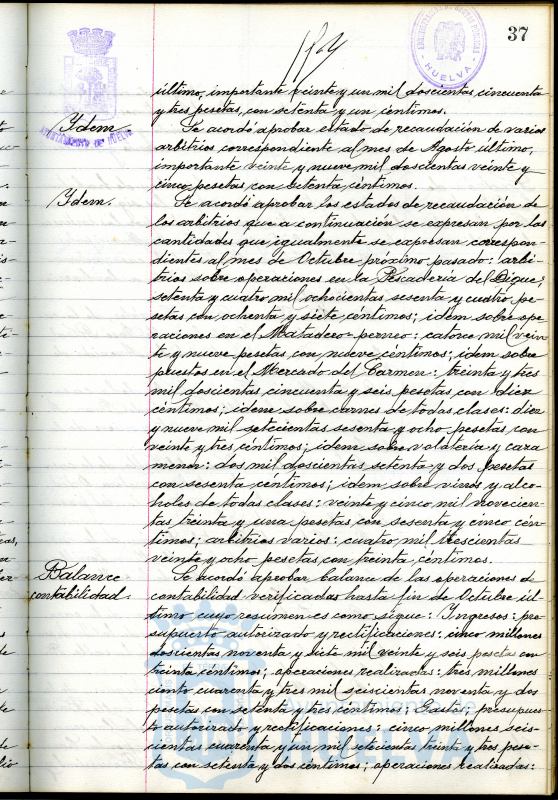 37
HUELVA
último, importante veinte y un mil doscientas cincuenta
y tres pesetas, con setenta y un céntimos.
Idem
AYUNTAMIENTO DE HUELVA
Se acordó aprobar estado de recaudación de varios
arbitrios correspondiente al mes de Agosto último,
importante veinte y nueve mil doscientas veinte y
cinco pesetas con setenta céntimos.
Idem.
Se acordó aprobar los estados de recaudación de
los arbitrios que a continuación se expresan por las
cantidades que igualmente se expresan correspon-
dientes al mes de Octubre próximo pasado: arbi-
trios sobre operaciones en la Pescadería del Dique;
setenta y cuatro mil ochocientas sesenta y cuatro pe-
setas con ochenta y siete céntimos; idem sobre ope-
raciones en el Matadero perneo: catorce mil vein-
te y nueve pesetas con nueve céntimos; idem sobre
puestos en el Mercado del Carmen: treinta y tres
mil doscientas cincuenta y seis pesetas con diez
céntimos; idem sobre carnes de todas clases: diez
y nueve mil setecientas sesenta y ocho pesetas con
veinte y tres céntimos; idem sobre volatería y caza
menor: dos mil doscientas setenta y dos pesetas
con sesenta céntimos; idem sobre vinos y alco-
holes de todas clases: veinte y cinco mil novecien-
tas treinta y una pesetas con sesenta y cinco cén-
timos; arbitrios varios: cuatro mil trescientas
veinte y ocho pesetas con treinta céntimos.
Balance
contabilidad.
Se acordó aprobar balance de las operaciones de
contabilidad verificadas hasta fin de Octubre úl-
timo cuyo resumen es como sigue: Ingresos: pre-
supuesto autorizado y rectificaciones: cinco millones
doscientas noventa y siete mil veinte y seis pesetas con
treinta céntimos; operaciones realizadas: tres millones
ciento cuarenta y tres mil seiscientas noventa y dos
pesetas con setenta y tres céntimos; Gastos; presupues-
to autorizado y rectificaciones: cinco millones seis-
cientas cuarenta y un mil setecientas treinta y tres pese-
tas con setenta y dos céntimos; operaciones realizadas: